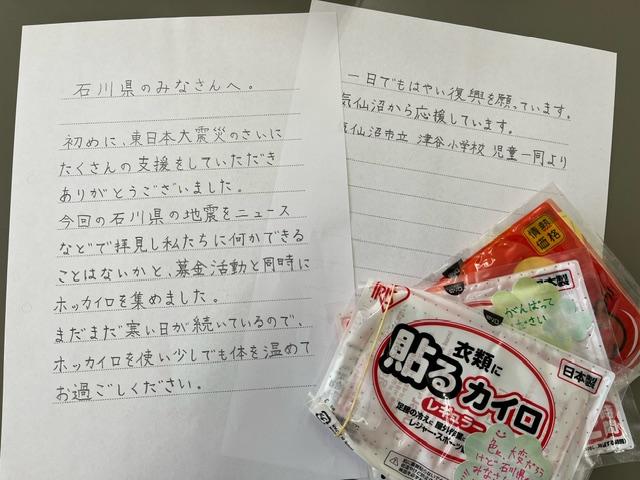 石川県のみなさんへ。
初めに、東日本大震災のさいに
たくさんの支援をしていただき
ありがとうございました。
今回の石川県の地震をニュース
などで拝見し私たちに何かできる
ことはないかと、募金活動と同時に
ホッカイロを集めました。
まだまだ寒い日が続いているので、
ホッカイロを使い少しでも体を温めて
お過ごしください。
一日でもはやい復興を願っています。
気仙沼から応援しています。
気仙沼市立 津谷小学校 児童一同より
情熱
価格
日本製
がんばって
ださい
IRIS
衣類に
貼るカイロ
レギュラー
足腰の冷えに 屋外作業に
レジャー・スポーツ
日本製
色々大変だろう
けど石川県の
みなさん